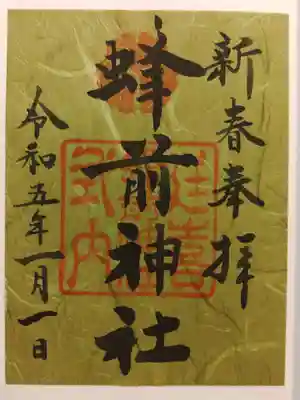 新春奉拝
蜂前神社
令和五年一月一日
延喜
式内